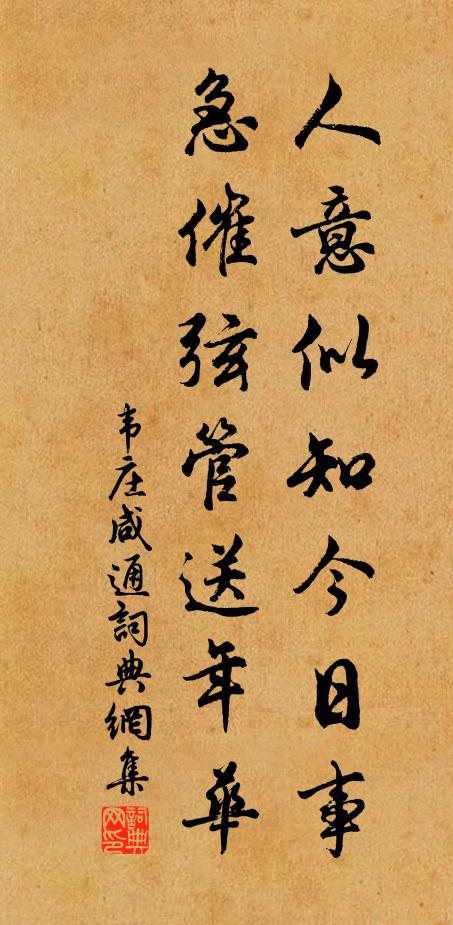 人意似知今日事
急催弦管送年華
韦庄咸通詞典網集
詞典网印